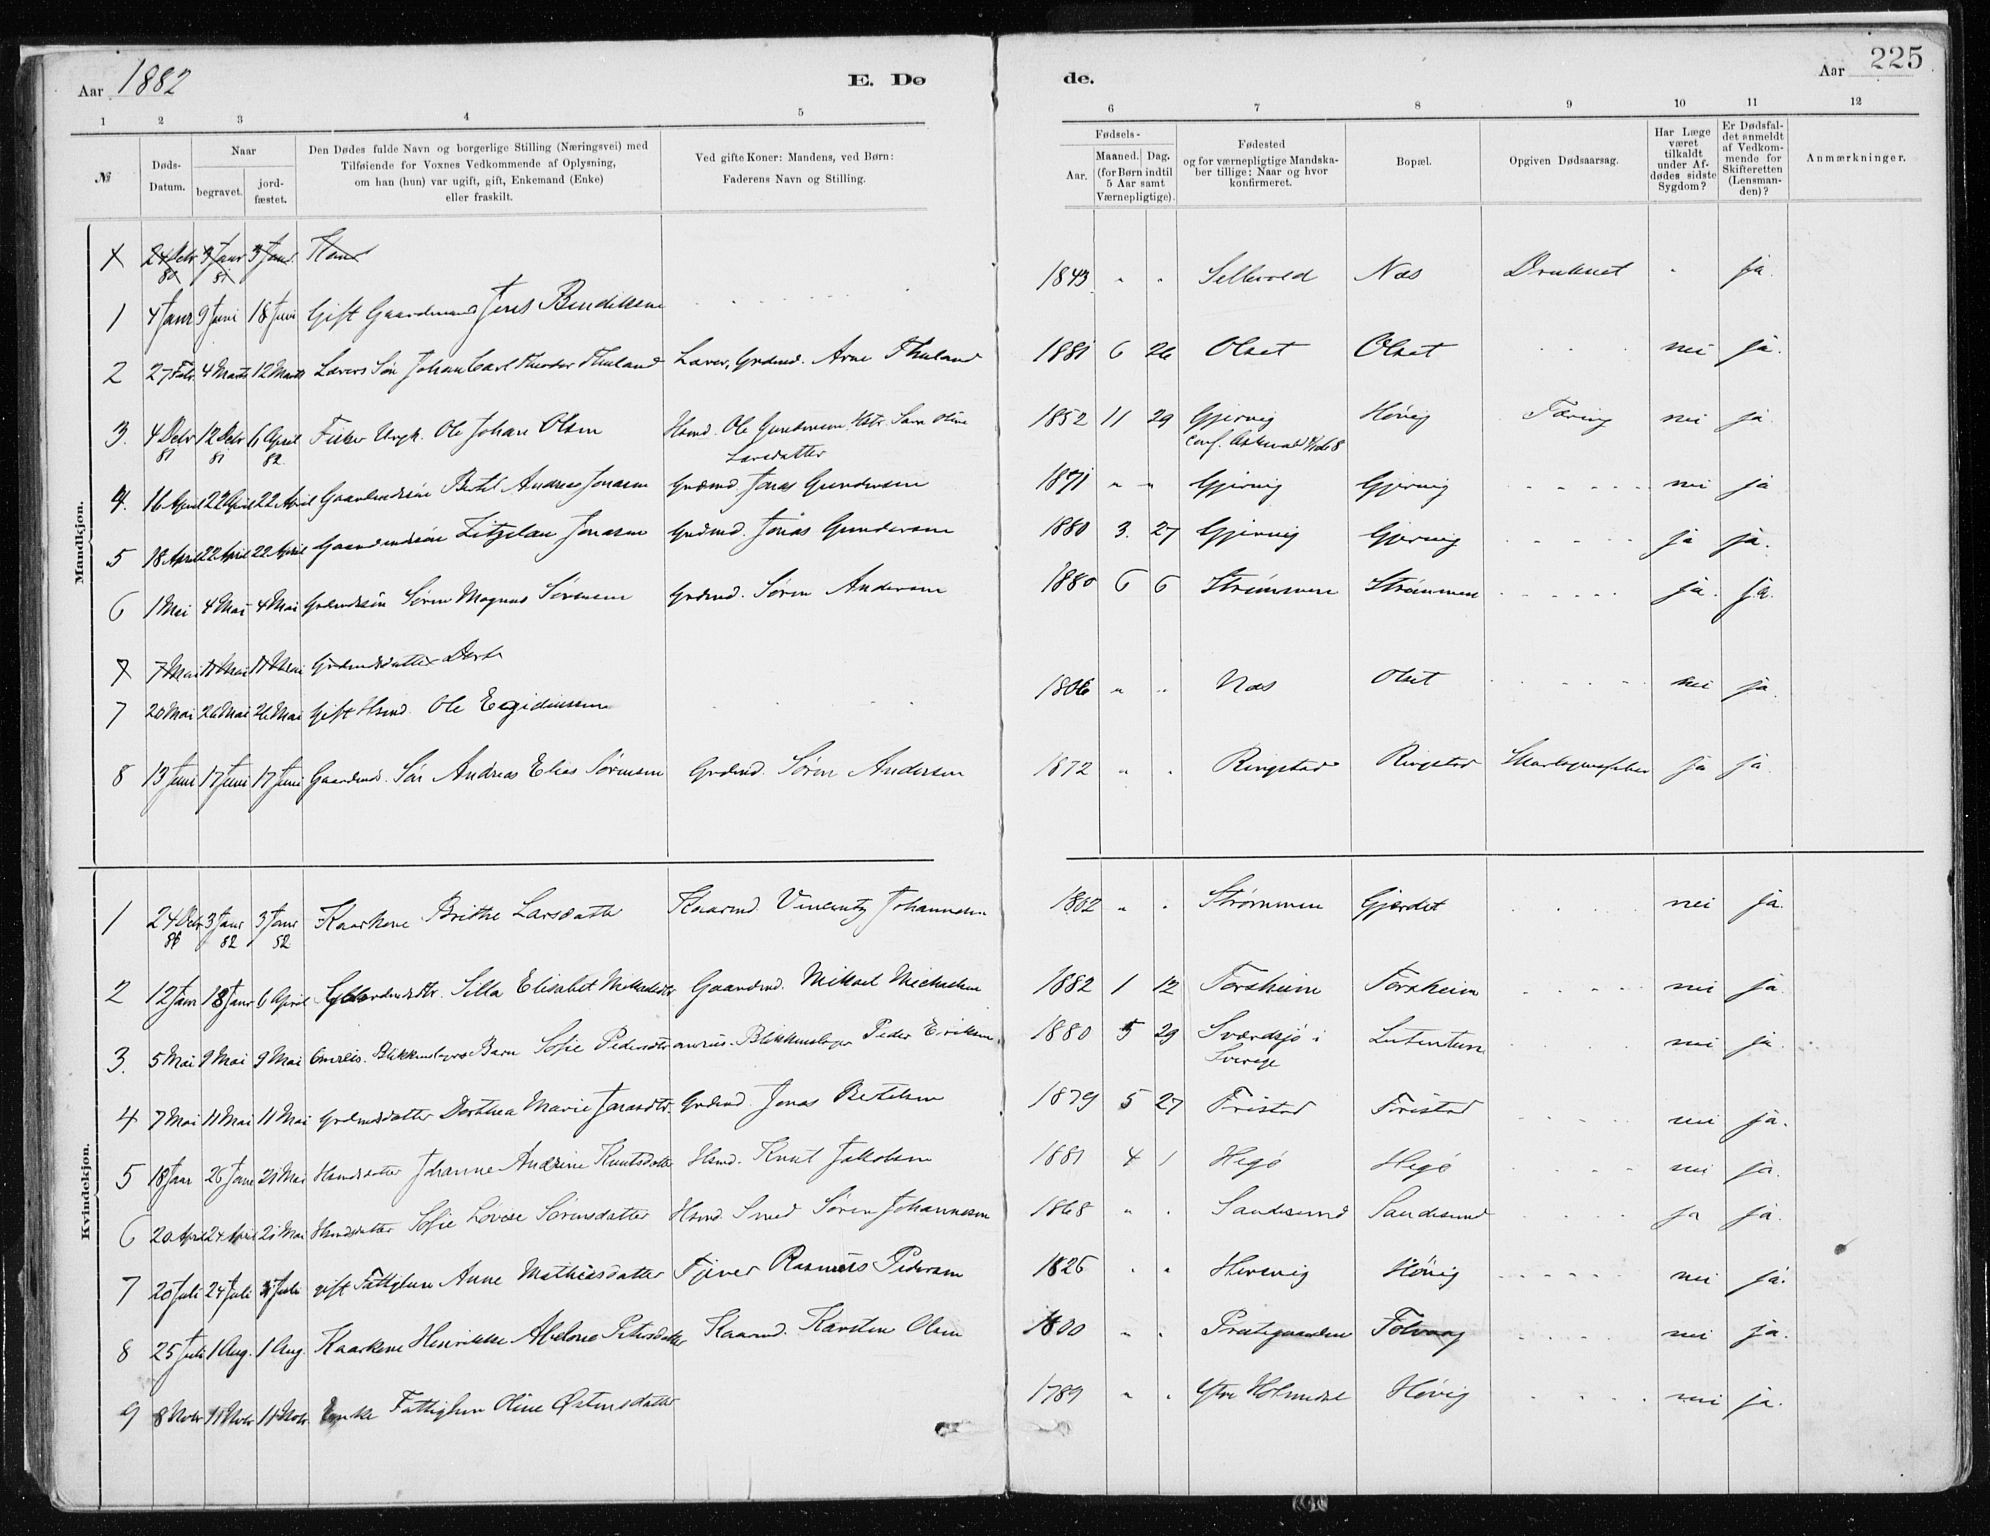 Aar 1882 E. Dø
1 2 3 4 5
№ Døds-Datum. Naar begravet. jord-fæstet. Den Dødes fulde Navn og borgerlige Stilling (Næringsvei) med Tilføiende for Voxnes Vedkommende af Oplysning, om han (hun) var ugift, gift, Enkemand (Enke) eller fraskilt. Ved gifte Koner: Mandens, ved Børn: Faderens Navn og Stilling.
de. Aar 225
6 7 8 9 10 11 12
Fødsels- Aar. Maaned. Dag. (for Børn indtil 5 Aar samt Værnepligtige). Fødested og for værnepligtige Mandskaber tillige: Naar og hvor konfirmeret. Bopæl. Opgiven Dødsaarsag. Har Læge været tilkaldt under Afdødes sidste Sygdom? Er Dødsfaldet anmeldt af Vedkommende for Skifteretten (Lensmanden)? Anmærkninger.
Mandkjøn.
1 24 Debr 80 3 Janr 81 3 Janr
1 4 Janr 9 Juni 18 Juni Gift Gaardmand Jens Bendiksen 1843 " " Sellevold Næs Druknet " ja.
2 27 Febr. 4 Marts 12 Marts Lærers Søn Johan Carl Theodor Thuland Lærer, Grdmd. Arne Thuland 1881 6 26 Olset Olset nei ja.
3. 4 Debr 81 12 Debr 81 6 April 82 Fisker Ungk. Ole Johan Olsen Hsmd. Ole Gundersen Hstr. Sara Oline
Larsdatter 1852 11 29 Gjervig Høvig Tæring nei ja.
4. 16 April 22 April 22 April Gaardmdssøn Bertel Andreas Jonasen Grdmd Jonas Gundersen 1871 " " Gjervig Gjervig nei ja
5 18 April 22 April 22 April Gaardmdssøn Litzelau Jonasen Grdmd. Jonas Gundersen 1880 3. 27 Gjervig Gjervig ja ja.
6 1 Mai 4 Mai 4 Mai Grdmdssøn Søren Magnus Sørensen Grdmd. Søren Andersen 1880 6 6 Strømmen Strømmen ja. ja.
7 7 Mai 11 Mai 11 Mai Grdmdsdatter Dort
7 20 Mai 26 Mai 26 Mai Gift Hsmd. Ole Egidiussen 1806 " " Næs Olset nei ja.
8 13 Juni 17 Juni 17 Juni Gaardmd. Søn Andreas Elias Sørensen Grdmd. Søren Andersen 1872 " " Ringstad Ringstad Skarlagensfeber ja ja.
Kvindekjøn.
1 24 Debr 3 Janr 82 3 Janr 82 Kaarkone Brithe Larsdatter Kaarmd. Vincentz Johannesen 1802 " " Strømmen Gjerdet nei ja.
2 12 Janr 18 Janr 6 April Silla Elisabet Gaardmd. Mikael Michaelsen 1882 1 12 Forsheim Forsheim nei ja.
3. 5 Mai 9 Mai 9 Mai Omreis. Blikkenslagers Barn Sofie Pedersdtr omreis. Blikkenslager Peder Eriksen 1880 5 29 Sværdsjø i
Sverige nei ja.
4 7 Mai 11 Mai 11 Mai Grdmdsdatter Dorthea Marie Jonasdtr. Grdmd. Jonas Bertelsen 1879 5 27 Fristad Fristad nei ja.
5 18 Janr 26 Janr 21 Mai Hsmdsdatter Johanne Andrine Knutsdatter Hsmd. Knut Jakobsen 1881 4 1 Hegø Hegø nei ja.
6 20 April 24 April 21 Mai Hsmdsdatter Sofie Lovise Sørensdatter Hsmd. Smed Søren Johannesen 1868 " " Sandesund Sandesund ja ja.
7 20 Juli 24 Juli Juli gift Fattiglem Anne Mathiasdatter Rasmus Pedersen 1826 " " Hersvig Høvig nei ja.
8 25 Juli 1 Aug. 1 Aug. Kaarkone Henrikke Abelone Petersdatter Kaarmd. Karsten Olsen 1800 " " Præstegaarden nei ja.
9 8 Nobr 11 Nobr 11 Nobr Enke Fattiglem Oline Østensdatter 1789 " " Ytre Høvig nei ja.